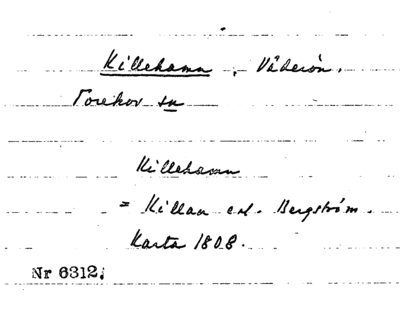 Killehamn, Väderön.
Torekov sn
Killehamn
= Killan enl. Bergström.
Karta 1808.
Nr 6312.